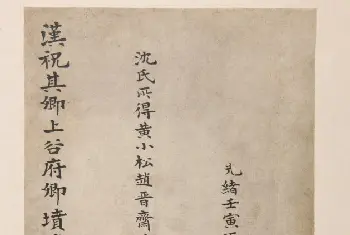 漢祝其卿上谷府卿墳
沈氏所得黃小松趙晉齋
光緒壬寅